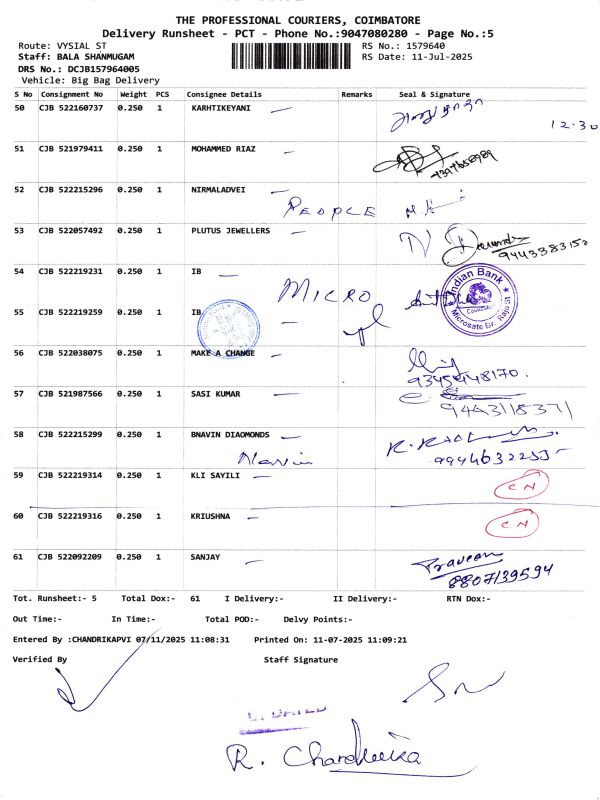 THE PROFESSIONAL COURIERS, COIMBATORE
Delivery Runsheet - PCT - Phone No.:9047080280 - Page No.:5
Route: VYSIAL ST RS No.: 1579640
Staff: BALA SHANMUGAM RS Date: 11-Jul-2025
DRS No.: DCJB157964005
Vehicle: Big Bag Delivery
S No Consignment No Weight PCS Consignee Details Remarks Seal & Signature
50 CJB 522160737 0.250 1 KARHTIKEYANI
12.30
51 CJB 521979411 0.250 1 MOHAMMED RIAZ
52 CJB 522215296 0.250 1 NIRMALADVEI
PEOPLE
53 CJB 522057492 0.250 1 PLUTUS JEWELLERS
54 CJB 522219231 0.250 1 IB
MICRO
Indian Bank
Microsate Br. Raja St
55 CJB 522219259 0.250 1 IB
56 CJB 522038075 0.250 1 MAKE A CHANGE
9345948170.
57 CJB 521987566 0.250 1 SASI KUMAR
9443118371
58 CJB 522215299 0.250 1 BNAVIN DIAOMONDS
Navin
59 CJB 522219314 0.250 1 KLI SAYILI
CN
60 CJB 522219316 0.250 1 KRIUSHNA
CN
61 CJB 522092209 0.250 1 SANJAY
Praveen
8807139594
Tot. Runsheet:- 5 Total Dox:- 61 I Delivery:- II Delivery:- RTN Dox:-
Out Time:- In Time:- Total POD:- Delvy Points:-
Entered By :CHANDRIKAPVI 07/11/2025 11:08:31 Printed On: 11-07-2025 11:09:21
Verified By Staff Signature
R. Chandrika